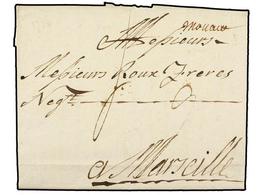 Messieurs
Messieurs Roux Freres
Negts
a Marseille